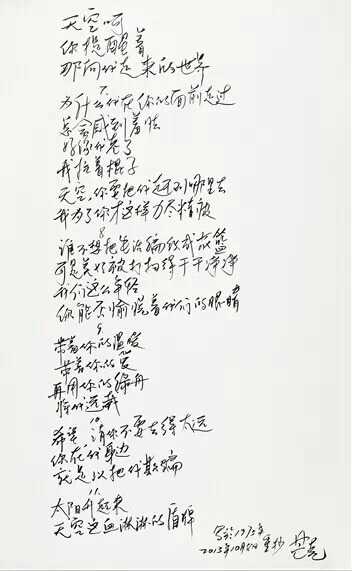 天空呵
你提醒着
那向我走来的世界
7
为什么我在你的面前走过
总会感到羞怯
好像我老了
我拄着棍子
天空，你要把我赶到哪里去
我为了你才这样力尽精疲
8
谁不想把生活编织成花篮
可是美好被打扫得干干净净
我们这么年轻
你能否愉悦着我们的眼睛
9
带着你的温暖
带着你的爱
再用你的绿舟
将我远载
10
希望 请你不要去得太远
你在我身边
就足以把我欺骗
11
太阳升起来
天空这血淋淋的盾牌
写於1973年
2013年10月 重抄 芒克